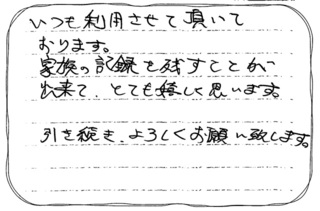 いつも利用させて頂いて
おります。
家族の記録を残すことが
出来て、とても嬉しく思います。
引き続き、よろしくお願い致します。